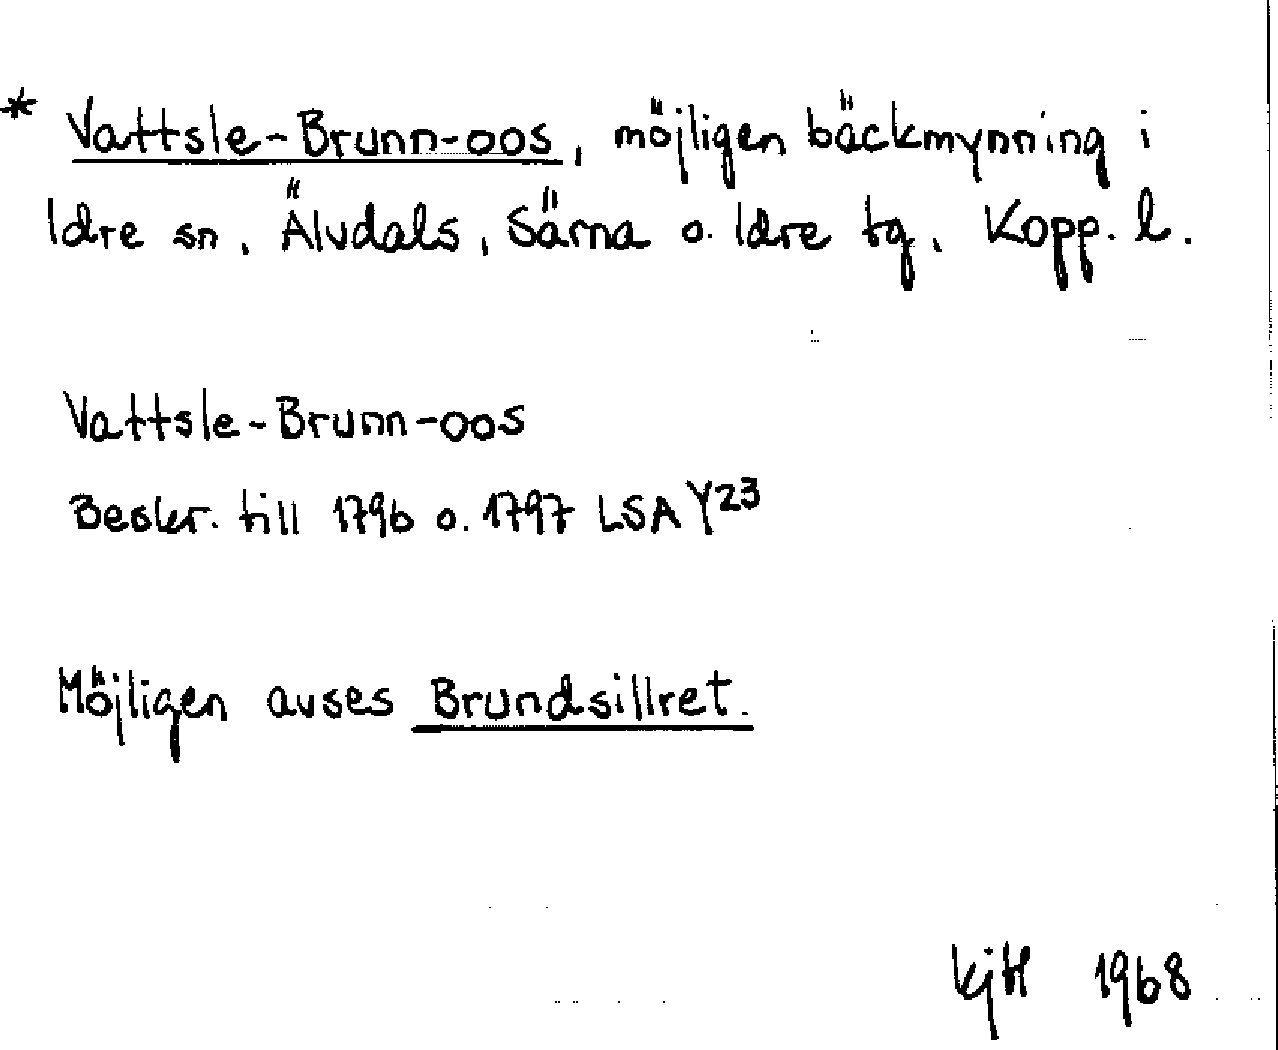 * Vattsle-Brunn-oos, möjligen bäckmynning i
Idre sn, Älvdals, Särna o. Idre tg, Kopp. l.
Vattsle-Brunn-oos
Beskr. till 1796 o. 1797 LSA Y23
Möjligen avses Brundsillret.
KjH 1968